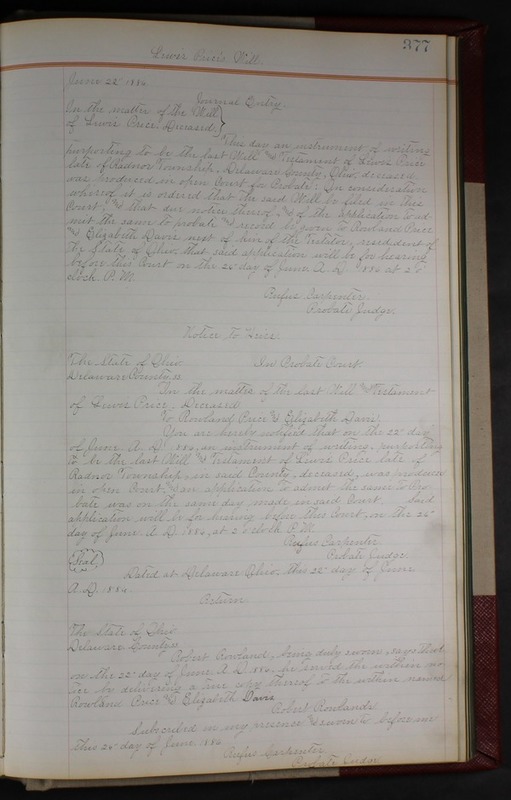 377
Lewis Price's Will.
June 22" 1886
Journal Entry
In the matter of the Will
of Lewis Price, Deceased.
This day an instrument of writing
purporting to be the last Will and Testament of Lewis Price
late of Radnor Township, Delaware County, Ohio, deceased,
was produced in open Court for Probate: In consideration
whereof it is ordered that the said Will be filed in this
Court; and that due notice thereof, and of the application to ad-
mit the same to probate and record be given to Rowland Price
and Elizabeth Davis next of kin of the Testator, resident of
the State of Ohio, that said application will be for hearing
before this Court on the 26" day of June A. D. 1886 at 2 o'
clock P. M.
Rufus Carpenter
Probate Judge.
Notice to Heirs.
The State of Ohio
In Probate Court.
Delaware County, ss
In the matter of the last Will and Testament
of Lewis Price, Deceased
To Rowland Price and Elizabeth Davis,
You are hereby notified that on the 22" day
of June A. D. 1886, an instrument of writing, purporting
to be the last Will and Testament of Lewis Price late of
Radnor Township, in said County, deceased, was produced
in open Court, and an application to admit the same to Pro-
bate was on the same day made in said Court. Said
application will be for hearing before this Court, on the 26"
day of June A. D. 1886, at 2 o'clock P. M.
Rufus Carpenter
Probate Judge
(Seal)
Dated at Delaware Ohio, this 22" day of June
A. D. 1886
Return
The State of Ohio
Delaware County ss
Robert Rowland, being duly sworn, says that
on the 22" day of June A. D. 1886, he served the within no-
tice by delivering a true copy thereof to the within named
Rowland Price and Elizabeth Davis
Robert Rowlands
Subscribed in my presence and sworn to before me
this 26" day of June 1886
Rufus Carpenter
Probate Judge